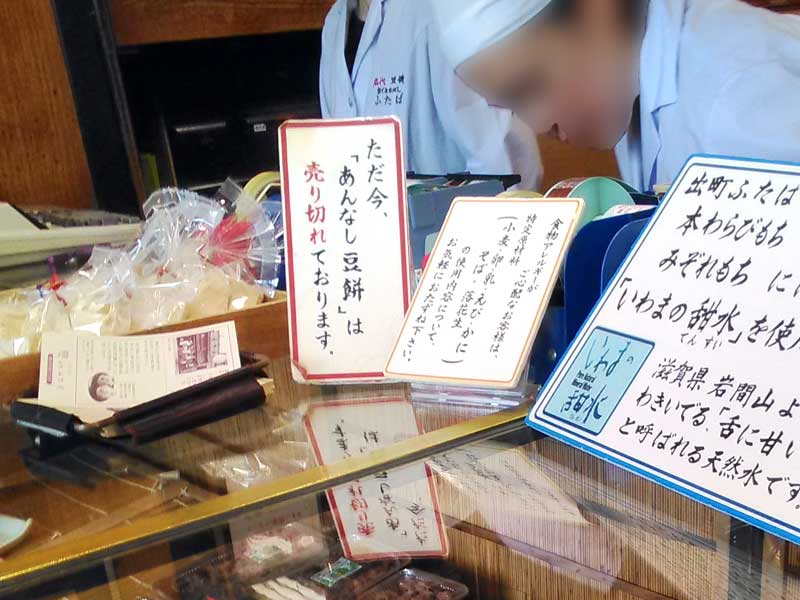 名代 豆餅
ふたば
ただ今、
「あんなし豆餅」は
売り切れております。
食物アレルギーが
ご心配なお客様は、
特定原材料
(小麦・卵・乳・えび・かに
そば・落花生)
の使用内容について、
お気軽におたずね下さい。
出町ふたば
本わらびもち
みぞれもち に
「いわまの甜水」を使
てんすい
いわまの
甜水
滋賀県 岩間山 よ
わきいでる、「舌に甘い
と呼ばれる天然水です